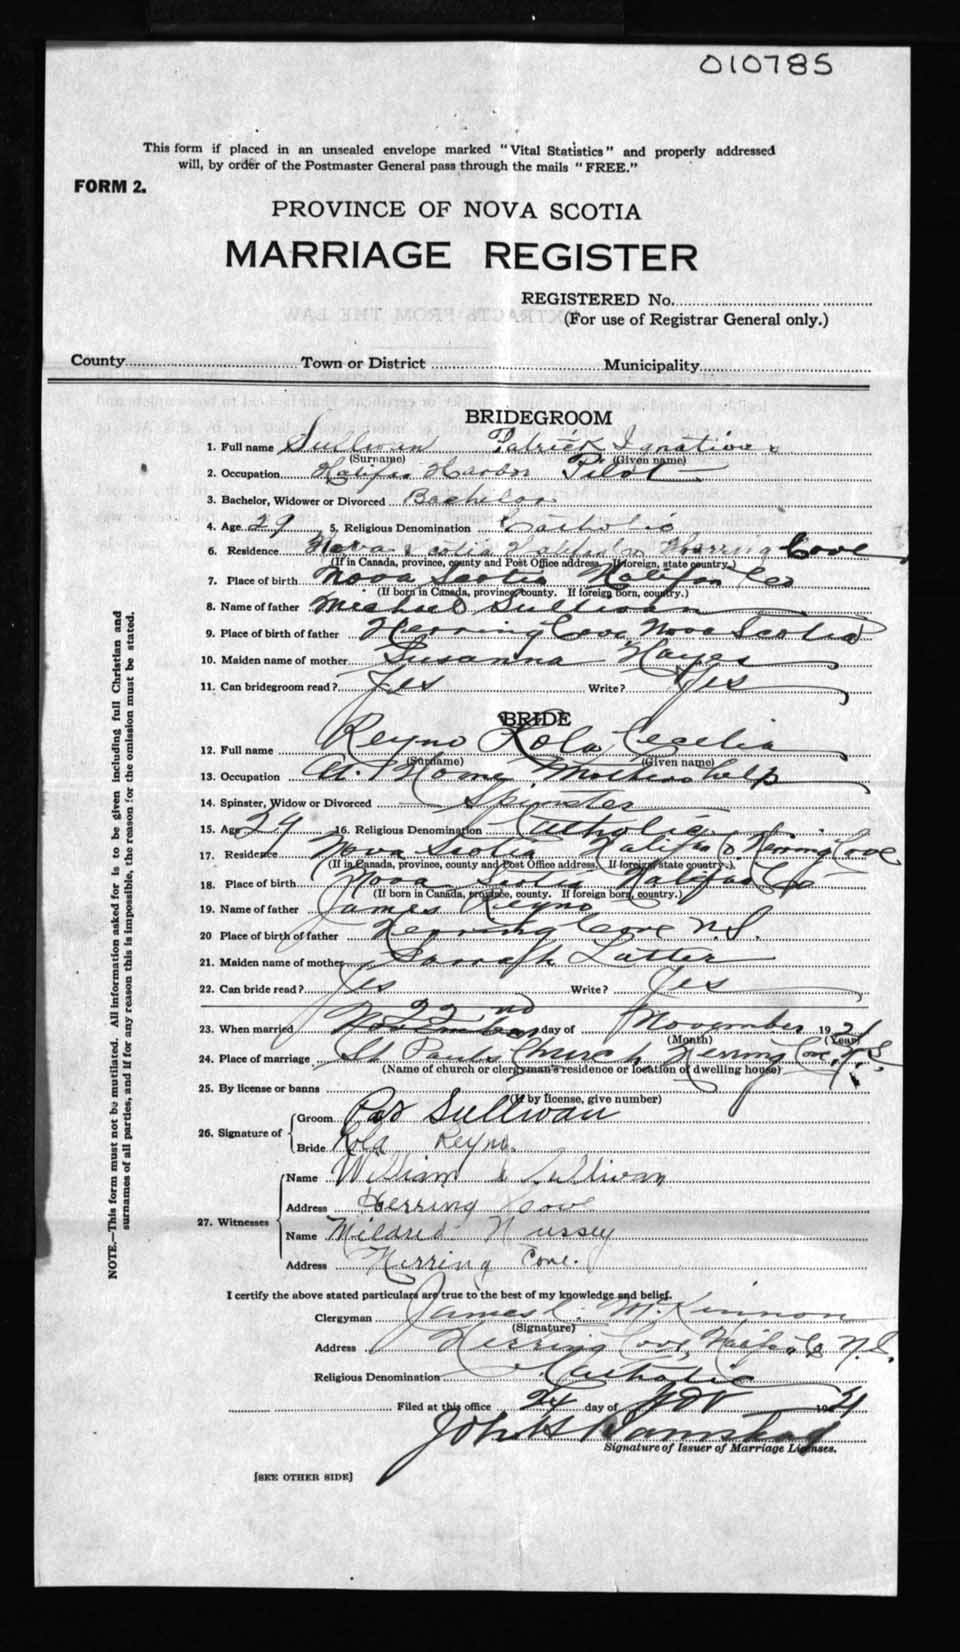 010785
This form if placed in an unsealed envelope marked "Vital Statistics" and properly addressed
will, by order of the Postmaster General pass through the mails "FREE."
FORM 2.
PROVINCE OF NOVA SCOTIA
MARRIAGE REGISTER
REGISTERED No.
(For use of Registrar General only.)
County Town or District Municipality
BRIDEGROOM
1. Full name Sullivan Patrick Ignatius
(Surname) (Given name)
2. Occupation Halifax Harbor Pilot
3. Bachelor, Widower or Divorced Bachelor
4. Age 29 5. Religious Denomination Catholic
6. Residence Nova Scotia Halifax Co Herring Cove
(If in Canada, province, county and Post Office address. If foreign, state country.)
7. Place of birth Nova Scotia Halifax Co
(If born in Canada, province, county. If foreign born, country.)
8. Name of father Michael Sullivan
9. Place of birth of father Herring Cove, Nova Scotia
10. Maiden name of mother Susanna Hayes
11. Can bridegroom read? Yes Write? Yes
BRIDE
12. Full name Reyno Rola Cecelia
(Surname) (Given name)
13. Occupation At Home Mothers help
14. Spinster, Widow or Divorced Spinster
15. Age 29 16. Religious Denomination Catholic
17. Residence Nova Scotia Halifax Co Herring Cove
(If in Canada, province, county and Post Office address. If foreign state country.)
18. Place of birth Nova Scotia Halifax Co
(If born in Canada, province, county. If foreign born, country.)
19. Name of father James Reyno
20 Place of birth of father Herring Cove N.S.
21. Maiden name of mother Sarah Latter
22. Can bride read? Yes Write? Yes
23. When married 22nd day of November 1921
(Month) (Year)
24. Place of marriage St Pauls Church Herring Cove, N.S.
(Name of church or clergyman's residence or location of dwelling house)
25. By license or banns
(If by license, give number)
26. Signature of Groom Pat Sullivan
Bride Rola Reyno.
27. Witnesses Name William Sullivan
Address Herring Cove
Name Mildred Nussey
Address Herring Cove.
I certify the above stated particulars are true to the best of my knowledge and belief.
Clergyman James C. McKinnon
(Signature)
Address Herring Cove, Halifax Co N.S.
Religious Denomination Catholic
Filed at this office 24 day of Nov 1921
John H
Signature of Issuer of Marriage Licenses.
[SEE OTHER SIDE]
NOTE.—This form must not be mutilated. All information asked for is to be given including full Christian and
surnames of all parties, and if for any reason this is impossible, the reason for the omission must be stated.